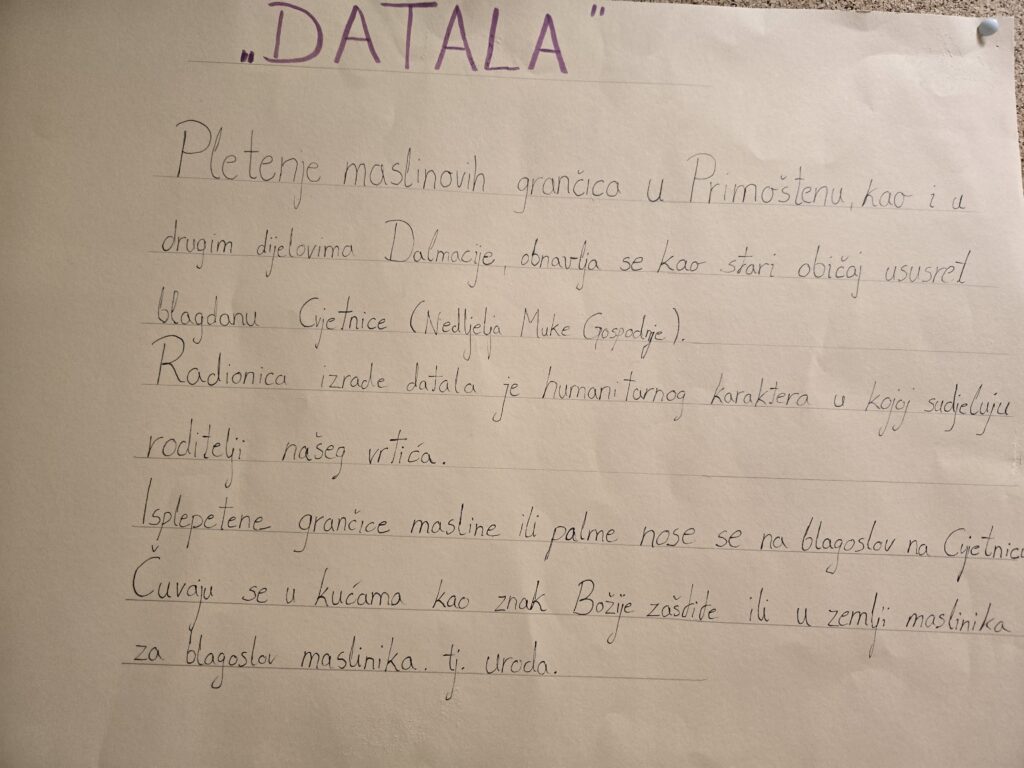 „DATALA"
Pletenje maslinovih grančica u Primoštenu, kao i u
drugim dijelovima Dalmacije, obnavlja se kao stari običaj ususret
blagdanu Cvjetnice (Nedljelja Muke Gospodnje).
Radionica izrade datala je humanitarnog karaktera u kojoj sudjeluju
roditelji našeg vrtića.
Isplepetene grančice masline ili palme nose se na blagoslov na Cvjetnicu
Čuvaju se u kućama kao znak Božije zaštite ili u zemlji maslinika
za blagoslov maslinika. tj. uroda.